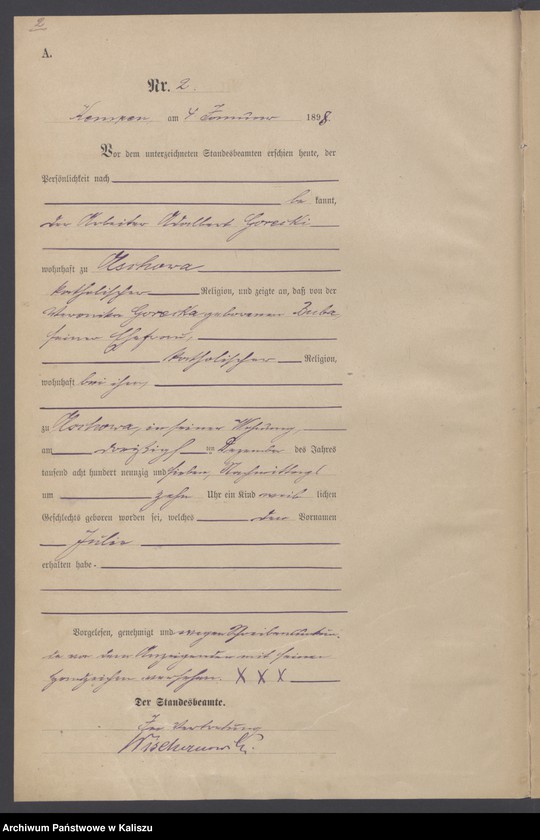 2
A.
Nr. 2.
Kempen am 4 Januar 1898
Vor dem unterzeichneten Standesbeamten erschien heute, der
Persönlichkeit nach
be kannt,
der Arbeiter Adalbert Gorecki
wohnhaft zu Olschowa
katholischer Religion, und zeigte an, daß von der
Veronika Gorecka geborenen Buba,
seiner Ehefrau,
katholischer Religion,
wohnhaft bei ihm,
zu Olschowa, in seiner Wohnung,
am dreißigsten Dezember des Jahres
tausend acht hundert neunzig und sieben, Nachmittags
um zehn Uhr ein Kind weib lichen
Geschlechts geboren worden sei, welches den Vornamen
Julie
erhalten habe.
Vorgelesen, genehmigt und wegen Schreibensunkun-
de von dem Anzeigenden mit seinen
Handzeichen versehen. X X X
Der Standesbeamte.
In Vertretung
Archiwum Państwowe w Kaliszu